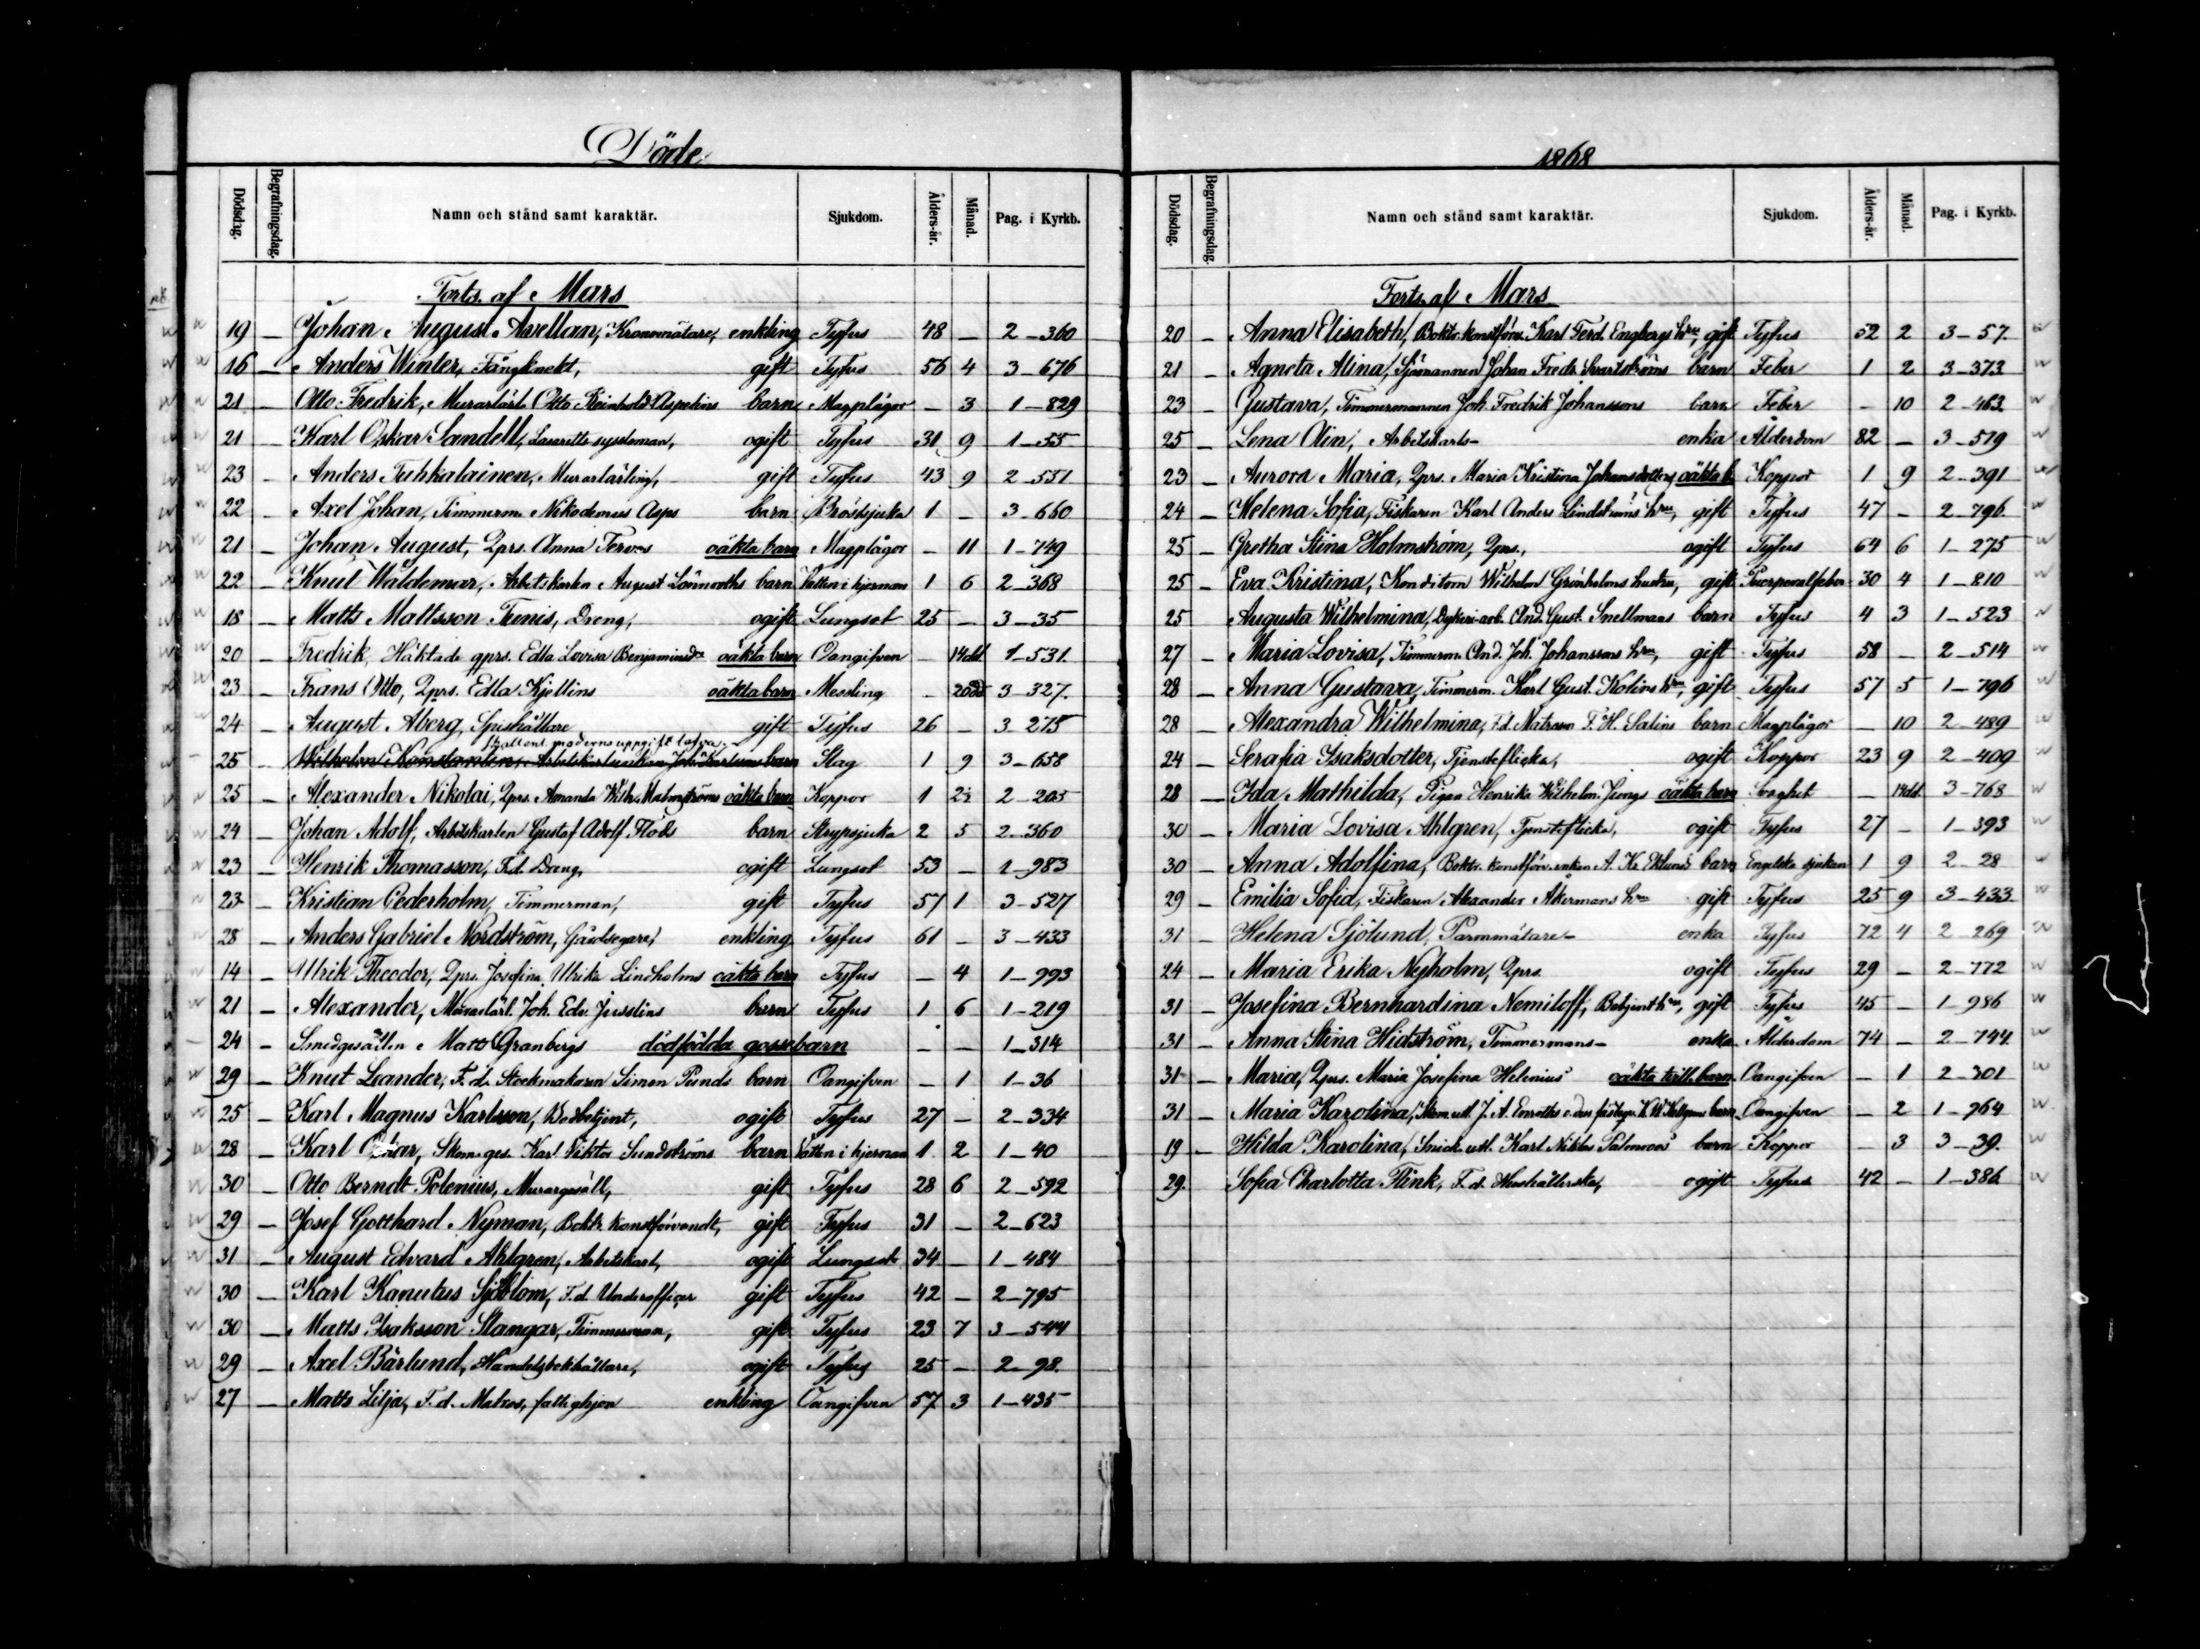 Döde
Dödsdag. Begrafningsdag. Namn och stånd samt karaktär. Sjukdom. Ålders-år. Månad. Pag. i Kyrkb.
Forts. af Mars
19 — Johan August Avellan, Kronomätare, enkling Tyfus 48 — 2—360
16 — Anders Winter, Fångknekt, gift Tyfus 56 4 3—676
21 — Otto Fredrik, Murarlärl. Otto Reinhold Aspelins barn Magplågor — 3 1—829
21 — Karl Oskar Sandell, Lasaretts syssloman, ogift Tyfus 31 9 1—55
23 — Anders Tuhkalainen, Murarlärling, gift Tyfus 43 9 2—551
22 — Axel Johan, Timmerm. Nikodemus Asps barn Bröstsjuka 1 — 3—660
21 — Johan August, Qprs. Anna Tervos oäkta barn Magplågor — 11 1—749
22 — Knut Waldemar, Arbetskarlen August Lönnroths barn Vatten i hjernan 1 6 2—368
18 — Matts Mattsson Tenis, Dreng, ogift Lungsot 25 — 3—35
20 — Fredrik, Häktade qprs. Edla Lovisa Benjaminsdrs oäkta barn Oangifven — 14 dd. 1—531.
23 — Frans Otto, Qprs. Edla Kjellins oäkta barn Messling — 20 dd 3—327.
24 — August Åberg, Spishållare gift Tyfus 26 — 3—275
enl. moderns uppgift
25 — Wilhelm Konstantin, barn Slag 1 9 3—658
25 — Alexander Nikolai, Qprs. Amanda Wilh. Malmströms oäkta barn Koppor 1 2½ 2—205
24 — Johan Adolf, Arbetskarlen Gustaf Adolf Flöds barn Strypsjuka 2 5 2—360
23 — Henrik Thomasson, F.d. Dreng, ogift Lungsot 53 — 1—983
23 — Kristian Cederholm, Timmerman, gift Tyfus 57 1 3—527
28 — Anders Gabriel Nordström, Gårdsegare, enkling Tyfus 61 — 3—433
14 — Ulrik Theodor, Qprs. Josefina Ulrika Lindholms oäkta barn Tyfus — 4 1—993
21 — Alexander, Murarlärl. Joh. Edv. Jusslins barn Tyfus 1 6 1—219
24 — Smedgesällen Matts Granbergs dödfödda gossebarn — — 1—314
29 — Knut Leander, F.d. Stockmakaren Simon Punds barn Oangifven — 1 1—36
25 — Karl Magnus Karlsson, Bodbetjent, ogift Tyfus 27 — 2—334
28 — Karl Oskar, Skom. ges. Karl Viktor Sundströms barn Vatten i hjernan 1 2 1—40
30 — Otto Berndt Polenius, Murargesäll, gift Tyfus 28 6 2—592
29 — Josef Gotthard Nyman, Boktr. konstförvandt, gift Tyfus 31 — 2—623
31 — August Edvard Ahlgren, Arbetskarl, ogift Lungsot 34 — 1—484
30 — Karl Kanutus Sjöblom, F.d. Underofficer gift Tyfus 42 — 2—795
30 — Matts Isaksson Slangar, Timmerman, gift Tyfus 23 7 3—544
29 — Axel Bärlund, Handelsbokhållare, ogift Tyfus 25 — 2—98.
27 — Matts Lilja, F.d. Matros, fattighjon enkling Oangifven 57 3 1—435
1868
Dödsdag. Begrafningsdag. Namn och stånd samt karaktär. Sjukdom. Ålders-år. Månad. Pag. i Kyrkb.
Forts. af Mars
20 — Anna Elisabeth, Boktr. konstförv. Karl Ferd. Engbergs hru, gift Tyfus 52 2 3—57.
21 — Agneta Alina, Sjömannen Johan Fredr. Svartströms barn Feber 1 2 3—373
23 — Gustava, Timmermannen Joh. Fredrik Johanssons barn Feber — 10 2—463.
25 — Lena Olin, Arbetskarls- enka Ålderdom 82 — 3—579
23 — Aurora Maria, Qprs. Maria Kristina Johansdotters oäkta b. Koppor 1 9 2—391
24 — Helena Sofia, Fiskaren Karl Anders Lindströms hru, gift Tyfus 47 — 2—796.
25 — Gretha Stina Holmström, Qprs., ogift Tyfus 64 6 1—275
25 — Eva Kristina, Konditorn Wilhelm Grönholms hustru, gift Puerperalfeber 30 4 1—810
25 — Augusta Wilhelmina, Dykeri-arb. And. Gust. Snellmans barn Tyfus 4 3 1—523
27 — Maria Lovisa, Timmerm. And. Joh. Johanssons hru, gift Tyfus 58 — 2—514
28 — Anna Gustava, Timmerm. Karl Gust. Kolins hru, gift Tyfus 57 5 1—796
28 — Alexandra Wilhelmina, F.d. Matrosen F. H. Salins barn Magplågor — 10 2—489
24 — Serafia Isaksdotter, Tjensteflicka, ogift Koppor 23 9 2—409
28 — Ida Mathilda, Pigan Henrika Wilhelm. Jungs oäkta barn Svaghet — 14 dd. 3—768
30 — Maria Lovisa Ahlgren, Tjensteflicka, ogift Tyfus 27 — 1—393
30 — Anna Adolfina, Boktr. konstförv. enkan A. K. Eklunds barn Engelska sjukan 1 9 2—28
29 — Emilia Sofia, Fiskaren Alexander Åkermans hru gift Tyfus 25 9 3—433
31 — Helena Sjölund, Parmmätare- enka Tyfus 72 4 2—269
24 — Maria Erika Nyholm, Qprs. ogift Tyfus 29 — 2—772
31 — Josefina Bernhardina Nemiloff, Betjent hru, gift Tyfus 45 — 1—986
31 — Anna Stina Hidström, Timmermans- enka Ålderdom 74 — 2—744.
31 — Maria, Qprs. Maria Josefina Helenius' oäkta tvill. barn Oangifven — 1 2—301
31 — Maria Karolina, J. A. Enroths barn Oangifven — 2 1—964
19 — Hilda Karolina, Snick. utl. Karl Niklas Salmroos' barn Koppor — 3 3—39.
29. Sofia Charlotta Flink, F.d. Hushållerska, ogift Tyfus 42 — 1—386